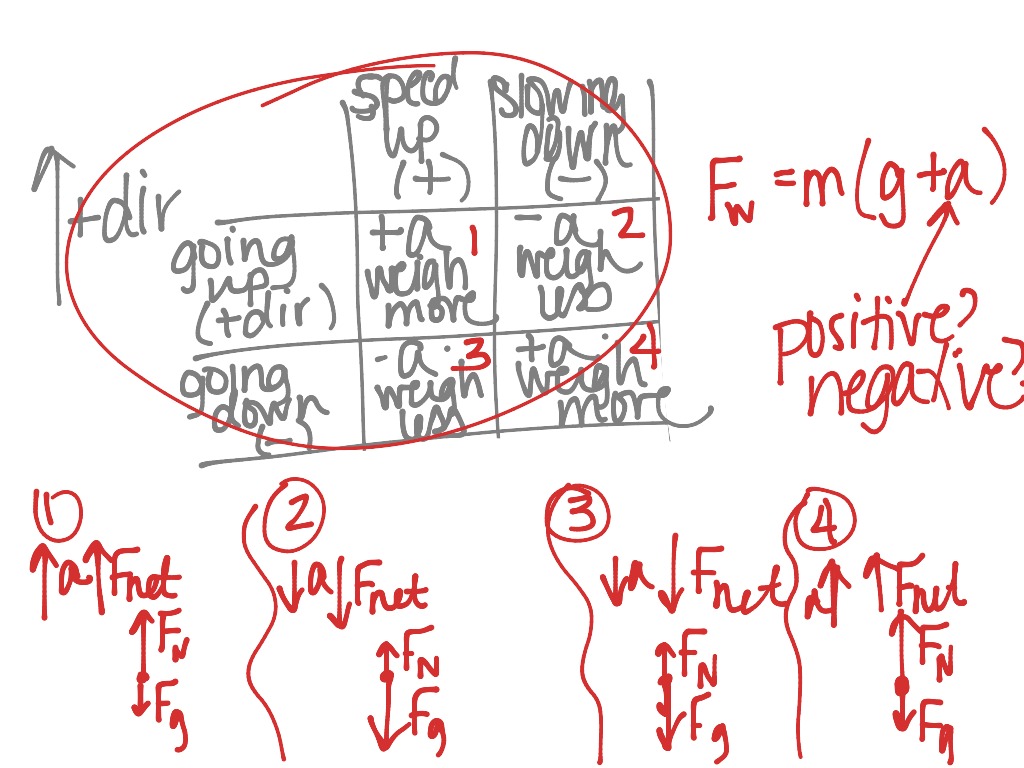 speed up (+)
slowing down (−)
+dir
going up (+dir)
+a weigh more 1
-a weigh less 2
going down (−)
-a weigh less 3
+a weigh more 4
F_w = m(g+a)
positive?
negative?
1
a F_net
F_N
F_g
2
a F_net
F_N
F_g
3
a F_net
F_N
F_g
4
a F_net
F_N
F_g